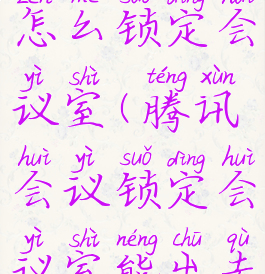 zěn me suǒ dìng huì
怎么锁定会
yì shì téng xùn
议室(腾讯
huì yì suǒ dìng huì
会议锁定会
yì shì néng chū qù
议室能出去